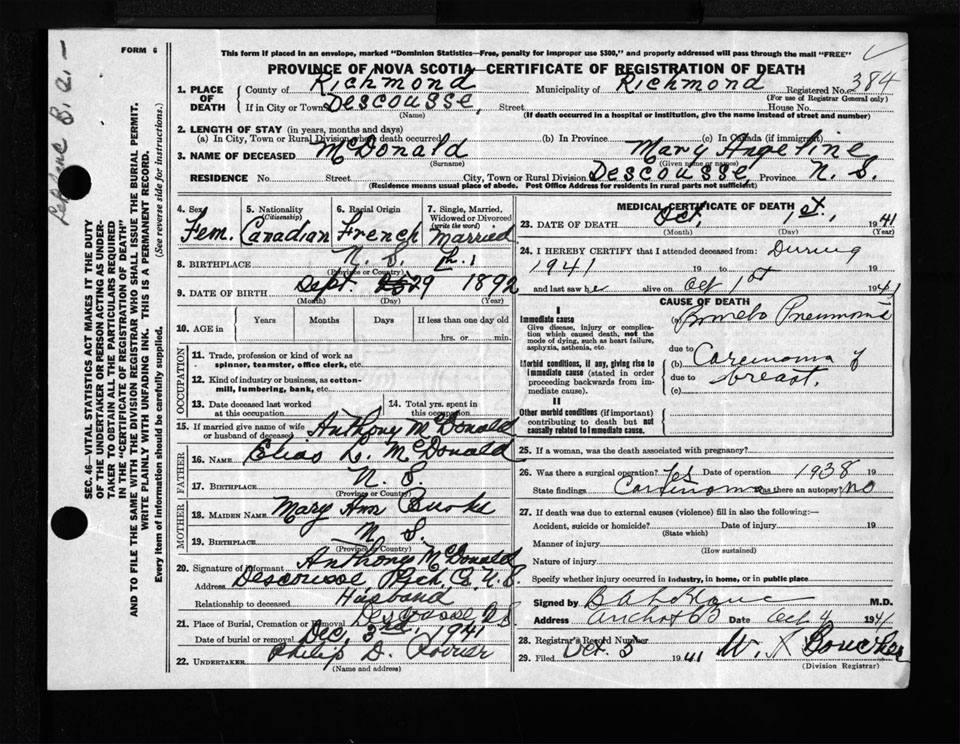 FORM 6
This form if placed in an envelope, marked "Dominion Statistics—Free, penalty for improper use $300," and properly addressed will pass through the mail "FREE"
PROVINCE OF NOVA SCOTIA—CERTIFICATE OF REGISTRATION OF DEATH
1. PLACE OF DEATH
County of Richmond Municipality of Richmond Registered No. 384
(For use of Registrar General only)
If in City or Town Descousse, Street House No.
(Name) (If death occurred in a hospital or institution, give the name instead of street and number)
2. LENGTH OF STAY (in years, months and days)
(a) In City, Town or Rural Division where death occurred (b) In Province (c) In Canada (if immigrant)
3. NAME OF DECEASED McDonald Mary
(Surname) (Given name or names)
RESIDENCE No. Street City, Town or Rural Division Descousse, Province N. S.
(Residence means usual place of abode. Post Office Address for residents in rural parts not sufficient)
4. Sex 5. Nationality (Citizenship) 6. Racial Origin 7. Single, Married, Widowed or Divorced (write the word)
Fem. Canadian French Married
8. BIRTHPLACE N. S.
(Province or Country)
9. DATE OF BIRTH Sept. 29 1892
(Month) (Day) (Year)
10. AGE in Years Months Days If less than one day old
hrs. or min.
OCCUPATION
11. Trade, profession or kind of work as spinner, teamster, office clerk, etc.
12. Kind of industry or business, as cotton-mill, lumbering, bank, etc.
13. Date deceased last worked at this occupation 14. Total yrs. spent in this occupation
15. If married give name of wife or husband of deceased Anthony McDonald
FATHER
16. NAME Elias L. McDonald
17. BIRTHPLACE N. S.
(Province or Country)
MOTHER
18. MAIDEN NAME Mary Ann Burke
19. BIRTHPLACE N. S.
(Province or Country)
20. Signature of Informant Anthony McDonald
Address Descousse Rich. Co. N. S.
Relationship to deceased Husband
21. Place of Burial, Cremation or Removal Descousse N S
Date of burial or removal Dec, 3rd, 1941
22. UNDERTAKER Philip D. Poirier
(Name and address)
MEDICAL CERTIFICATE OF DEATH
23. DATE OF DEATH Oct. 1st, 1941
(Month) (Day) (Year)
24. I HEREBY CERTIFY that I attended deceased from: During
1941 19 to 19
and last saw her alive on Oct 1st 1941
CAUSE OF DEATH
I
Immediate cause
Give disease, injury or complication which caused death, not the mode of dying, such as heart failure, asphyxia, asthenia, etc.
(a) Broncho Pneumonia
due to
Morbid conditions, if any, giving rise to immediate cause (stated in order proceeding backwards from immediate cause).
(b) Carcinoma of
due to breast.
(c)
II
Other morbid conditions (if important) contributing to death but not causally related to immediate cause.
25. If a woman, was the death associated with pregnancy?
26. Was there a surgical operation? Yes Date of operation 1938 19
State findings Carcinoma Was there an autopsy? NO
27. If death was due to external causes (violence) fill in also the following:—
Accident, suicide or homicide? Date of injury 19
(State which)
Manner of injury
(How sustained)
Nature of injury
Specify whether injury occurred in industry, in home, or in public place
Signed by M.D.
Address Date Oct 4 1941
28. Registrar's Record Number
29. Filed Oct 3 1941
(Division Registrar)
SEC. 46—VITAL STATISTICS ACT MAKES IT THE DUTY
OF THE UNDERTAKER OR PERSON ACTING AS UNDERTAKER TO OBTAIN ALL THE PARTICULARS REQUIRED
IN THE "CERTIFICATE OF REGISTRATION OF DEATH"
AND TO FILE THE SAME WITH THE DIVISION REGISTRAR WHO SHALL ISSUE THE BURIAL PERMIT.
WRITE PLAINLY WITH UNFADING INK. THIS IS A PERMANENT RECORD.
Every item of information should be carefully supplied. (See reverse side for instructions.)